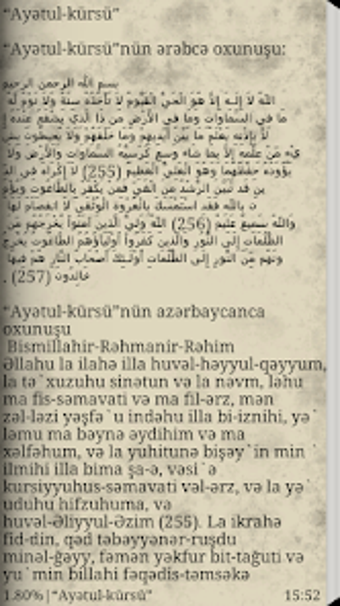 “Ayətul-kürsü”
“Ayətul-kürsü”nün ərəbcə oxunuşu:
بسم الله الرحمن الرحيم
اللّهُ لاَ إِلَـهَ إِلاَّ هُوَ الْحَيُّ الْقَيُّومُ لاَ تَأْخُذُهُ سِنَةٌ وَلاَ نَوْمٌ لَّهُ
مَا فِي السَّمَاوَاتِ وَمَا فِي الأَرْضِ مَن ذَا الَّذِي يَشْفَعُ عِنْدَهُ إِ
لاَّ بِإِذْنِهِ يَعْلَمُ مَا بَيْنَ أَيْدِيهِمْ وَمَا خَلْفَهُمْ وَلاَ يُحِيطُونَ بِشَ
يْءٍ مِّنْ عِلْمِهِ إِلاَّ بِمَا شَاء وَسِعَ كُرْسِيُّهُ السَّمَاوَاتِ وَالأَرْضَ وَلاَ
يَؤُودُهُ حِفْظُهُمَا وَهُوَ الْعَلِيُّ الْعَظِيمُ (255) لاَ إِكْرَاهَ فِي الدِّ
ينِ قَد تَّبَيَّنَ الرُّشْدُ مِنَ الْغَيِّ فَمَنْ يَكْفُرْ بِالطَّاغُوتِ وَيُؤْمِ
ن بِاللّهِ فَقَدِ اسْتَمْسَكَ بِالْعُرْوَةِ الْوُثْقَىَ لاَ انفِصَامَ لَهَا
وَاللّهُ سَمِيعٌ عَلِيمٌ (256) اللّهُ وَلِيُّ الَّذِينَ آمَنُواْ يُخْرِجُهُم مِّنَ
الظُّلُمَاتِ إِلَى النُّوُرِ وَالَّذِينَ كَفَرُواْ أَوْلِيَآؤُهُمُ الطَّاغُوتُ يُخْرِجُ
ونَهُم مِّنَ النُّورِ إِلَى الظُّلُمَاتِ أُوْلَـئِكَ أَصْحَابُ النَّارِ هُمْ فِيهَا
خَالِدُونَ (257) .
“Ayətul-kürsü”nün azərbaycanca
oxunuşu
Bismillahir-Rəhmanir-Rəhim
Əllahu la ilahə illa huvəl-həyyul-qəyyum,
la tə`xuzuhu sinətun və la nəvm, ləhu
ma fis-səmavati və ma fil-ərz, mən
zəl-ləzi yəşfə`u indəhu illa bi-iznihi, yə`
ləmu ma bəynə əydihim və ma
xəlfəhum, və la yuhitunə bişəy`in min
ilmihi illa bima şa-ə, vəsi`ə
kursiyyuhus-səmavati vəl-ərz, və la yə`
uduhu hifzuhuma, və
huvəl-Əliyyul-Əzim (255). La ikrahə
fid-din, qəd təbəyyənər-ruşdu
minəl-ğəyy, fəmən yəkfur bit-tağuti və
yu`min billahi fəqədis-təmsəkə
1.80% | “Ayətul-kürsü” 15:52